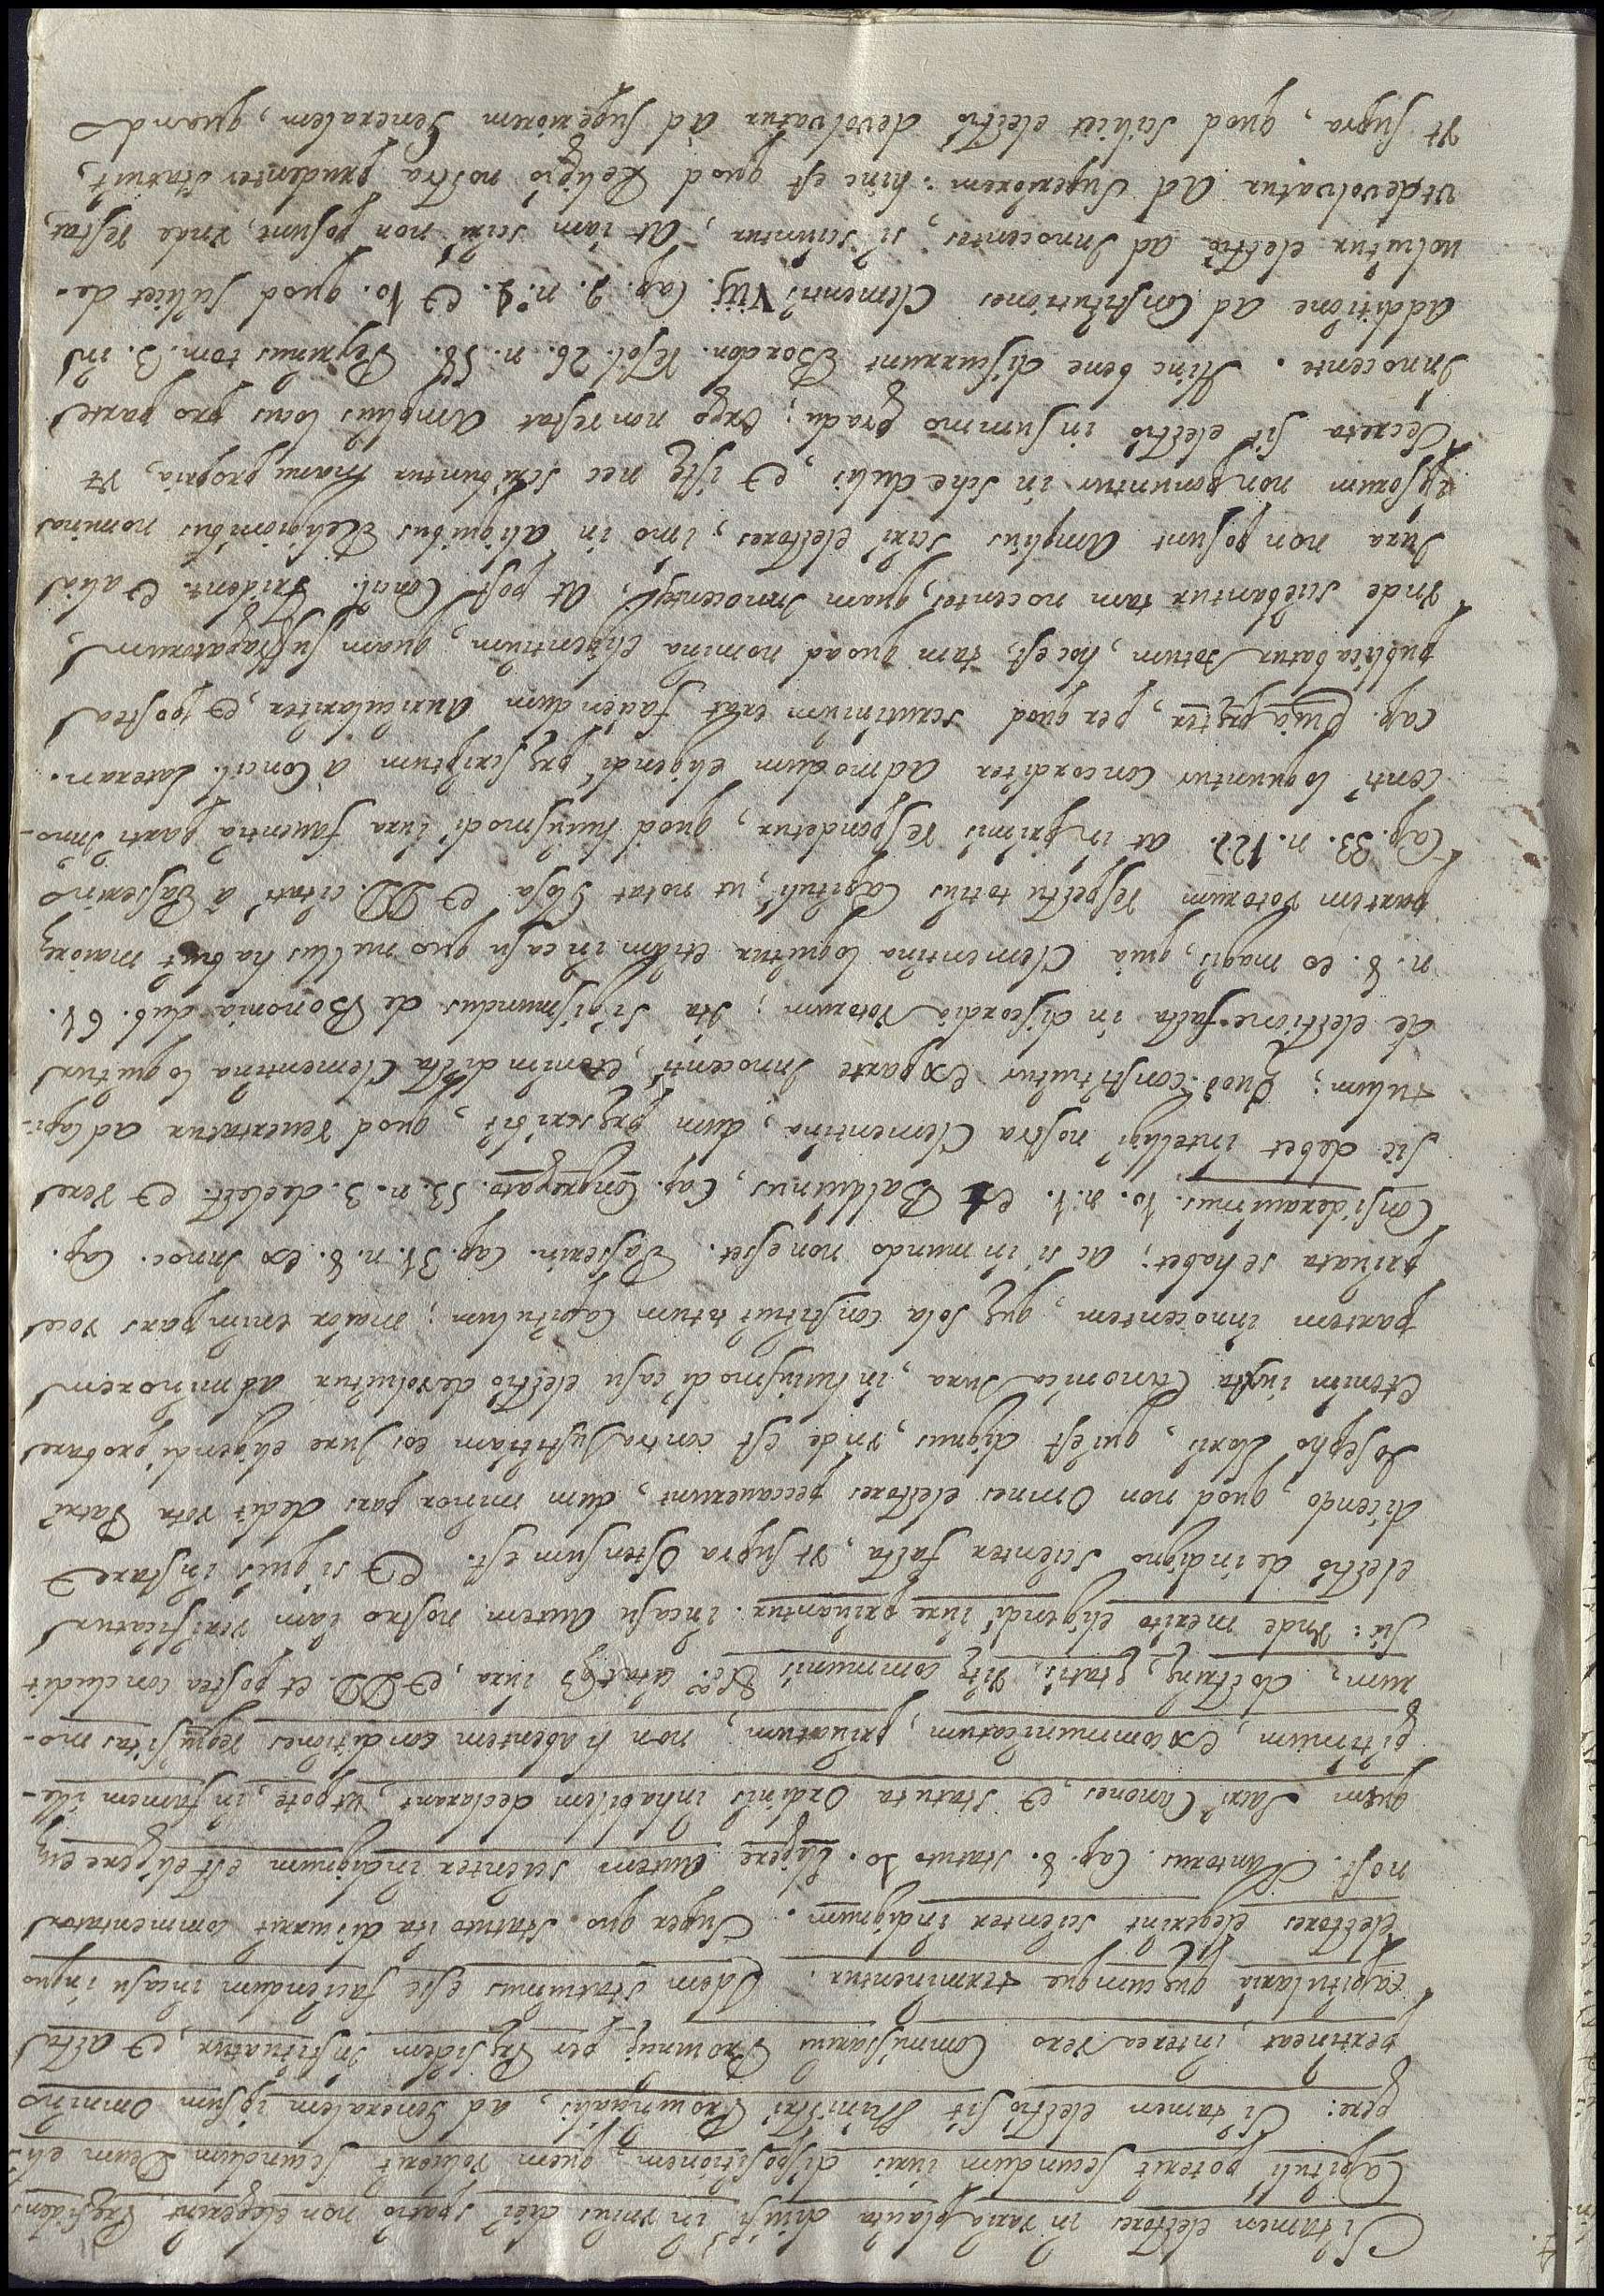 Si tamen electores in varia placita diuisi in vnius diei spatio non elegerint Pręsidens
Capituli poterit secundum iuris dispositionem, quem voluerit secundum Deum eli-
gere: Si tamen electio sit Ministri Prouincialis, ad Generalem ipsum omnino
pertineat, interea vero Commissarius Prouincię per Pręsidem instituatur, et acta
capitularia quęcumque terminentur. Idem statuimus esse faciendum in casu in quo
electores elegerint scienter indignum. Super quo statuto ita diuinauit commentator
nost. Santorus Cap. 8. statuto 10. Eligere autem scienter indignum est eligere eū
quem Sacri Canones, et statuta Ordinis inhabilem declarant, ut pote, infamem ille-
gitimum, excommunicatum, priuatum, non habentem conditiones requisitas mo-
rum, doctrinę, ętatis, vitę communis &c. citatq3 iura, et DD. et postea concludit
sic: Vnde merito eligendi iure priuantur. in casu autem nostro iam verificatur
electio de indigno scienter facta, vt supra ostensum est. Et si quis instaret
dicendo, quod non omnes electores peccauerunt, dum minor pars dedit vota Patri
Josepho Claris, qui est dignus, vnde est contra Justitiam eos jure eligendi priuare
Etenim iuxta Canonica Jura, in huiusmodi casu electio deuoluitur ad minorem
partem innocentem, quę sola constituit totum Capitulum; maior enim pars voce
priuata se habet; ac si in mundo non esset. Passerin. Cap. 31. n. 8. ex Innoc. Cap.
Considerauimus. 10. n. 1. et Balduinus, Cap. Congregato. 53. n. 3. de elect. et vere
sic debet intelligi nostra Clementina, dum pręscribit, quod reuertatur ad Capi-
tulum; Quod constituitur ex parte Innocenti, etenim dicta Clementina loquitur
de electione facta in discordia votorum; ita Sigismundus de Bononia dub. 61.
n. 8. eo magis, quia Clementina loquitur etiam in casu quo nullus habuit maiorē
partem votorum respectu totius Capituli, ut notat Glosa et DD. citati à Passerino
Cap. 33. n. 127. at inprimis respondetur, quod huiusmodi iura fauentia parti Inno-
centi loquuntur concorditer ad modum eligendi pręscriptum à Concil. Lateran.
cap. Quia propter, per quod scrutinium erat faciendum auriculariter, et postea
publicabatur totum, hoc est, tam quoad nomina eligentium, quam suffragatorum,
Vnde sciebantur tam nocentes, quam Innocentes, at post Concil. Trident. et alia
Jura non possunt amplius sciri electores, imo in aliquibus Religionibus nomina
ipsorum non ponuntur in schedulis, et istę nec scribuntur manu propria, vt
secreta sit electio in summo gradu; ergo non restat amplius locus pro parte
Innocente. Hinc bene discurrunt Bordon. resol. 26. n. 58. Peyrinus tom. 3. in
additione ad Constitutiones Clementis VIII. Cap. 2. n. 9. et 10. quod scilicet de-
uoluitur electio ad Innocentes, si sciuntur, at iam sciri non possunt, vnde restat,
vt deuoluatur ad Superiorem: hinc est quod Religio nostra prudenter statuit,
vt supra, quod scilicet electio deuoluatur ad superiorem Generalem, quando